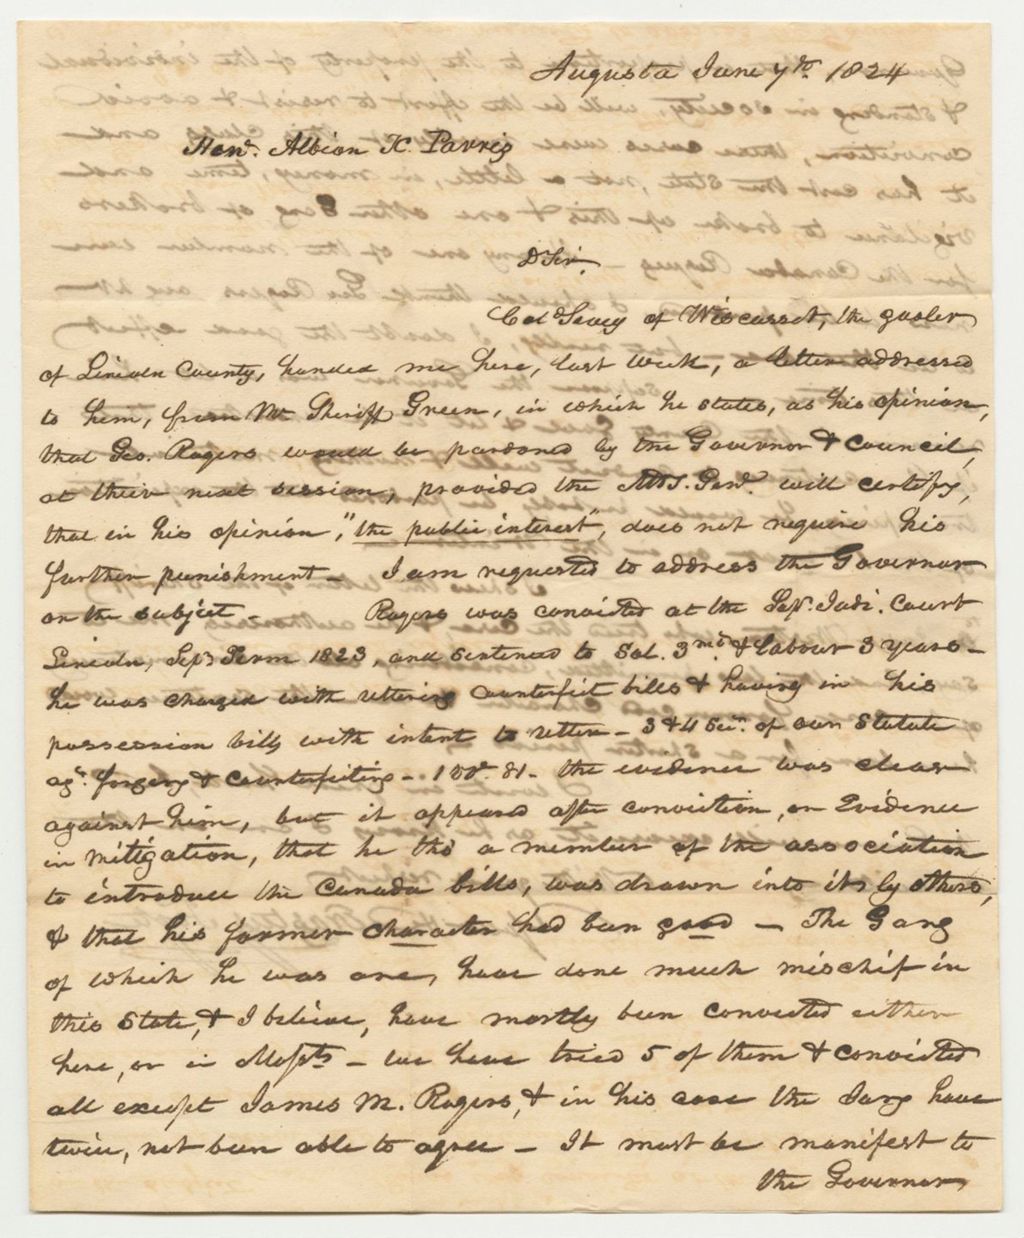 Augusta June 7th. 1824
Hon. Albion K. Parris
D Sir.
Col Seavy of Wiscasset, the gaoler
of Lincoln County, handed me here, last week, a letter addressed
to him, from Mr Sheriff Green, in which he states, as his opinion,
that Geo. Rogers would be pardoned by the Governor & Council,
at their next session, provided the Att. Genl. will certify,
that in his opinion, "the public interest", does not require his
further punishment - I am requested to address the Governor
on the subject - Rogers was convicted at the Sup. Judi. Court
Lincoln, Sep. Term 1823, and sentenced to Sol. 3 md. & labour 3 years -
he was charged with uttering counterfeit bills & having in his
possession bills with intent to utter - 3 & 4 Sec. of our Statute
agt. forgery & counterfeiting - 1 vol. 81 - the evidence was clear
against him, but it appeared after conviction, on Evidence
in mitigation, that he tho' a member of the association
to introduce the Canada bills, was drawn into it by others,
& that his former character had been good - The Gang
of which he was one, have done much mischif in
this State, & I believe, have mostly been convicted either
here, or in Massts - we have tried 5 of them & convicted
all except James M. Rogers, & in his case the Jury have
twice, not been able to agree - It must be manifest to
the Governor,